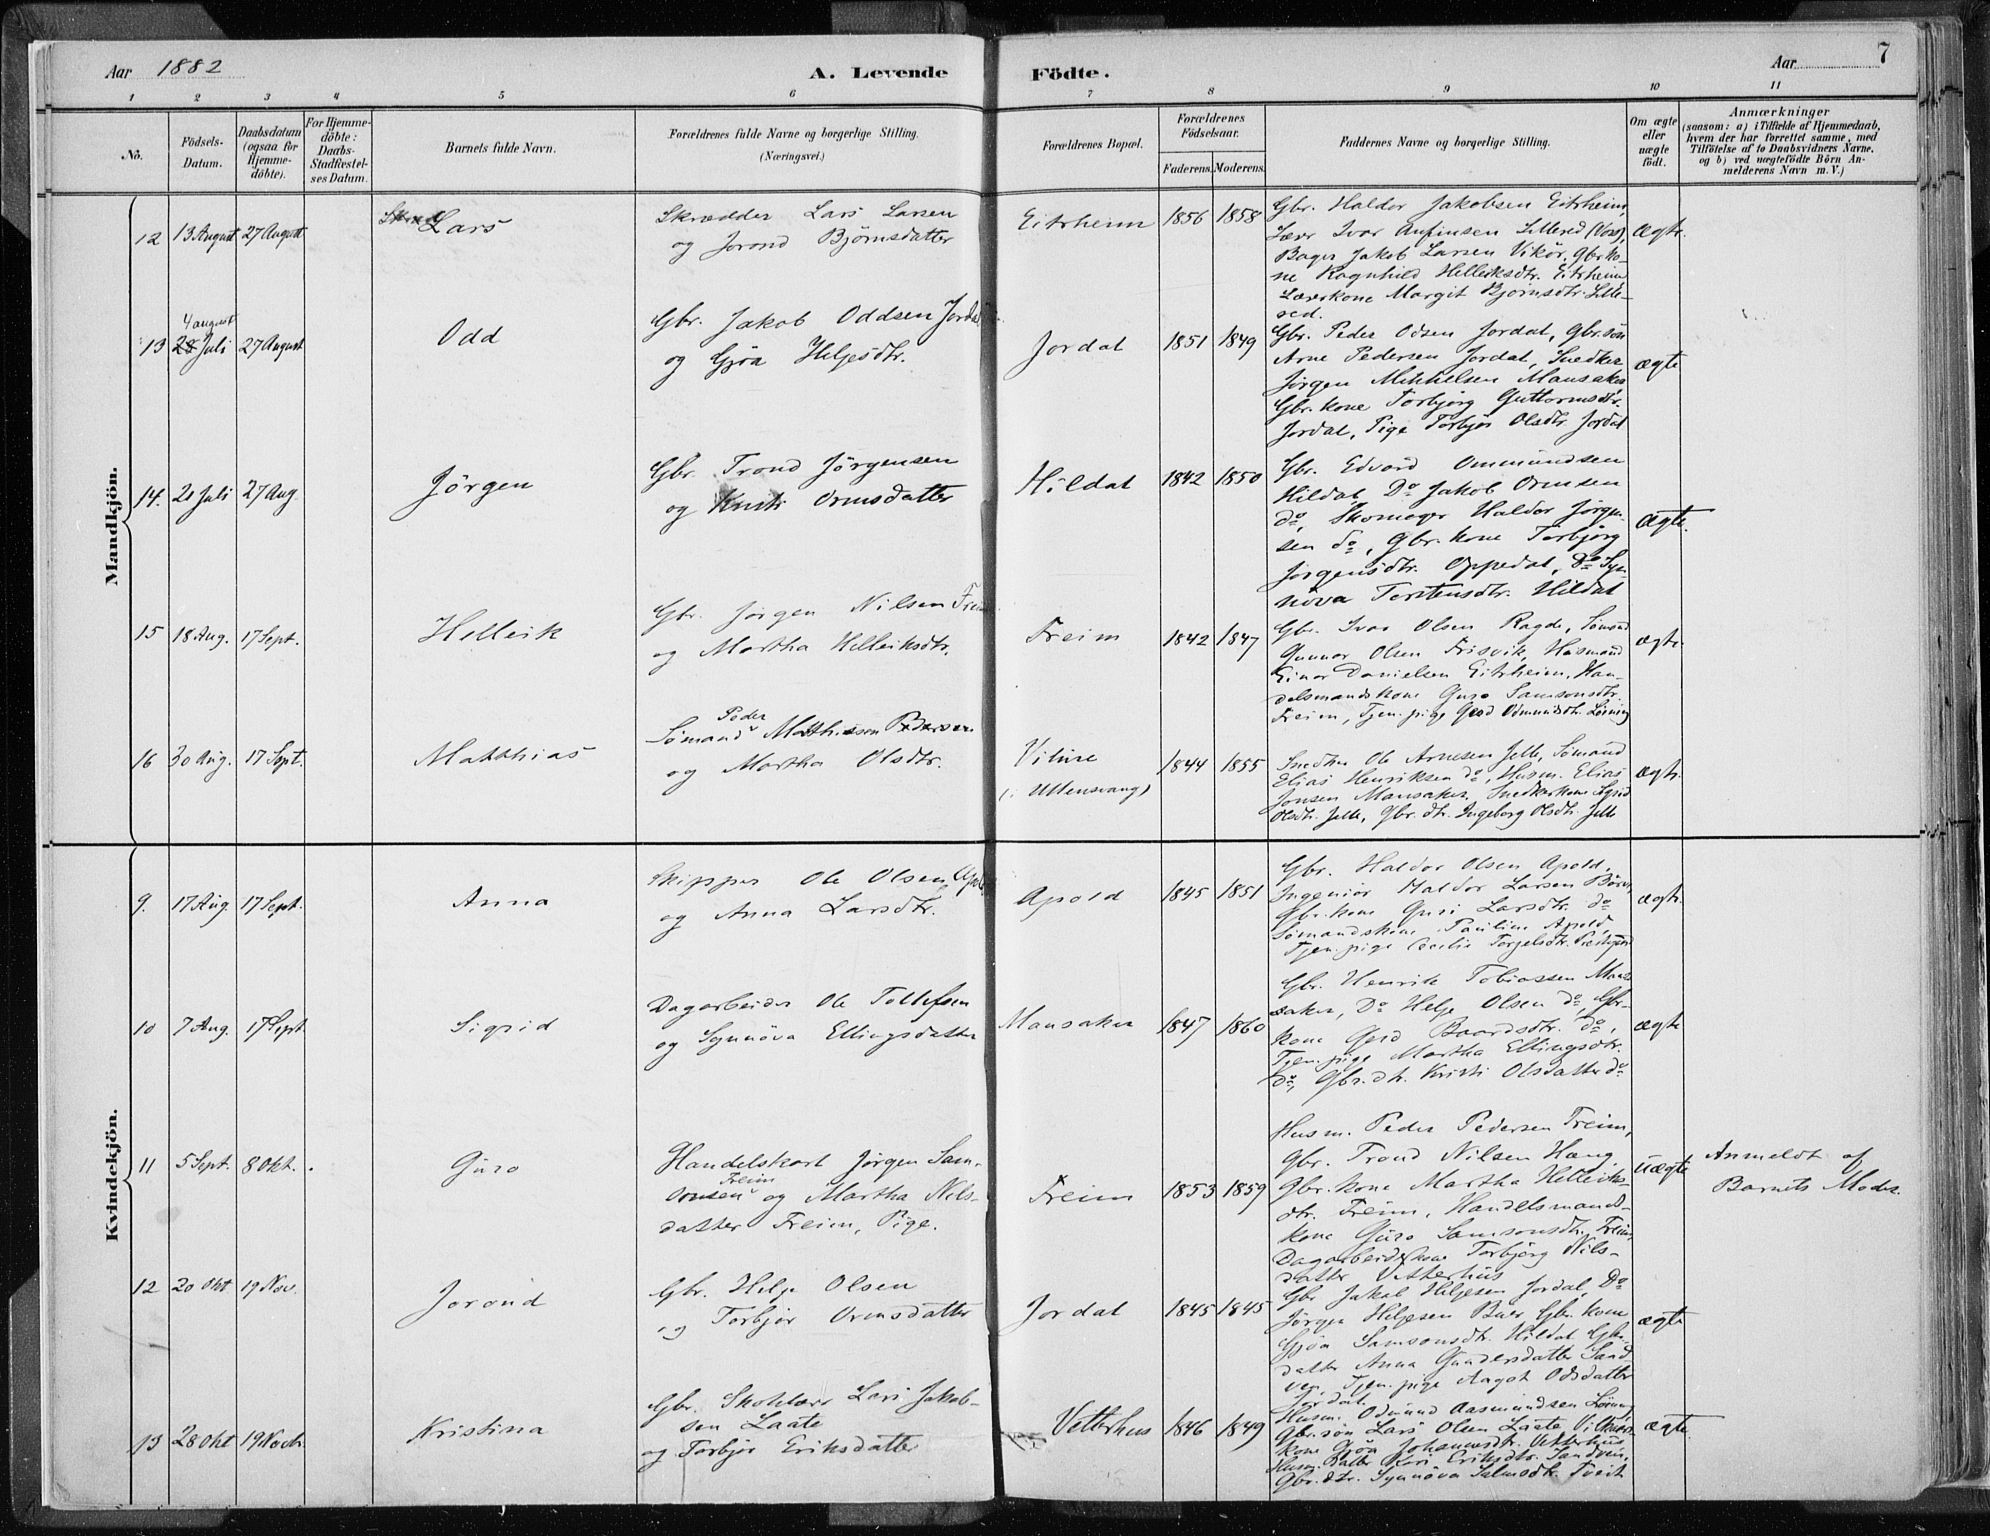 Aar 1882
A. Levende
Födte.
Aar
7
1 2 3 4 5 6 7 8 9 10 11
No.
Födsels-
Datum.
Daabsdatum
(ogsaa for
Hjemme-
döbte).
For Hjemme-
döbte:
Daabs-
Stadfæstel-
ses Datum.
Barnets fulde Navn.
Forældrenes fulde Navne og borgerlige Stilling.
(Næringsvei.)
Forældrenes Bopæl.
Forældrenes
Födselsaar.
Faderens. Moderens.
Faddernes Navne og borgerlige Stilling.
Om ægte
eller
uægte
født.
Anmærkninger
(saasom: a) i Tilfælde af Hjemmedaab,
hvem der har forrettet samme, med
Tilföielse af to Daabsvidners Navne,
og b) ved uægtefödte Börn An-
melderens Navn m. V.)
Mandkjön.
12
13 August
27 August
Lars
Skrædder Lars Larsen
og Jorond Bjørnsdatter
Eitrheim
1856
1858
Gbr. Haldor Jakobsen Eitrheim,
Lærer Ivar Anfinsen Lillered (Voss),
Bager Jakob Larsen Vikör, Gbr.ko-
ne Ragnhild Helleiksdtr. Eitrheim
Lærerkone Margit Bjørnsdtr. Lille-
red.
ægte.
13
4 august
28 Juli
27 August
Odd
Gbr. Jakob Oddsen Jordal
og Gjøa Heljesdtr.
Jordal
1851
1849
Gbr. Peder Odsen Jordal, Gbr.søn
Arne Pedersen Jordal, Snedker
Jørgen Mikkelsen Mansaker
Gbr. kone Torbjørg Guttormsdtr.
Jordal, Pige Torbjør Olsdtr. Jordal
ægte
14.
21 Juli
27 Aug.
Jörgen
Gbr. Trond Jörgensen
og Kristi Ormsdatter
Hildal
1842
1850
Gbr. Edvard Ommundsen
Hildal, Do Jakob Ormsen
do, Skomager Haldor Jørgen-
sen do, Gbr. kone Torbjørg
Jørgensdtr. Oppedal, Do Syn-
növa Torstensdtr. Hildal
ægte.
15
18 Aug.
17 Sept.
Helleik
Gbr. Jørgen Nilsen Freim
og Martha Helleiksdtr.
Freim
1842
1847
Gbr. Ivar Olsen Ragde, Sømand
Gunnar Olsen Frisvik, Husmand
Einar Danielsen Eitrheim, Han-
delsmandskone Guro Samsonsdtr.
Freim, Tjen.pige Gerd Odmundsdtr. Løining
ægte.
16
30 Aug.
17 Sept.
Matthias
Peder
Sömand Matthiasen Pedersen
og Martha Olsdtr.
Vilure
(i Ullensvang)
1844
1855
Snedker Ole Arnesen Jelle, Sømand
Elias Henriksen do, Husm. Elias
Jonsen Mansaker, Snedkerkone Sigrid
Olsdtr. Jelle, Gbr. dtr. Ingeborg Olsdtr. Jelle
ægte.
Kvindekjön.
9.
17 Aug
17 Sept.
Anna
Skipper Ole Olsen Apold
og Anna Larsdtr.
Apold
1845
1851
Gbr. Haldor Olsen Apold,
Ingeniör Haldor Larsen Börve,
Gbr.kone Guri Larsdtr. do
Sömandskone Pauline Apold,
Tjen.pige Cecilie Torgelsdtr. Prestegaard
ægte.
10
7 Aug.
17 Sept
Sigrid
Dagarbeider Ole Tollefsen
og Synnöva Ellingsdatter
Mansaker
1847
1860
Gbr. Henrik Tobiassen Man-
saker, Do Helje Olsen do, Gbr-
kone Gerd Baardsdtr. do,
Tjen.pige Martha Ellingsdtr.
do, Gbr.dtr. Kristi Olsdatter do
ægte
11
5 Sept.
8 Okt.
Guro
Handelskarl Jørgen Sam-
Freim
sonsen og Martha Nils-
datter Freim, Pige.
Freim
1853
1859
Husm. Peder Pedersen Freim,
Gbr. Trond Nilsen Haug
Gbr. kone Martha Helleiks-
dtr. Freim, Handelsmand-
kone Guro Samsonsdtr. Freim,
Dagarbeiderkone Torbjörg Nils-
datter Vetterhus
uægte
Anmeldt af
Barnets Moder.
12
20 Okt
19 Nov.
Jorond
Gbr. Helje Olsen
og Torbjør Ormsdatter
Jordal
1845
1845
Gbr Jakob Heljesen Jordal, Do
Jörgen Heljesen Buer Gbr. kone
Gjöa Samsonsdtr. Hildal Gbr-
datter Anna Gunnersdatter Sand
ven, Tjen.pige Aagot Odsdatter
Jordal.
ægte
13
28 Okt
19 Novbr.
Kristina
Gbr. Skolelærer Lars Jakob-
sen Laate
og Torbjør Eriksdatter
Vetterhus
1846
1849
Husm. Odmund Aasmundsen Löining
Gbr. søn Lars Olsen Laate Vikör
kone Gjøa Johannesdtr. Vetterhus
Husm. datter Kari Eriksdtr. Sandven,
Gbr.dtr. Synnöva Salmosdtr. Tveit
ægte.